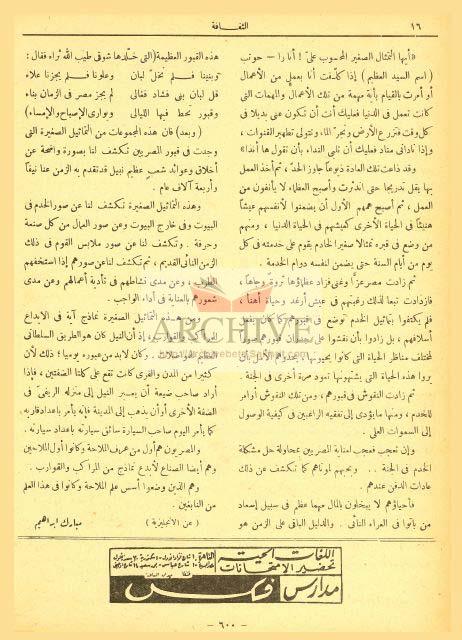 ١٦
الثقافة
«أيها التمثال الصغير المحسوب علىّ ! أنا را - حوتب
( اسم السيد العظيم ) إذا كلفت أنا بعمل من الأعمال
أو أمرت بالقيام بأية مهمة من تلك الأعمال والمهمات التى
كانت تعمل فى الدنيا فعليك أنت أن تكون عنى بديلا فى
كل وقت فتزرع الأرض وتجر الماء، وتتولى تطهير القنوات ،
وإذا نادانى مناد فعليك أن تلبى النداء بأن تقول ها أنذا»
وقد ذاعت تلك العادة ذيوعا جاوز الحد ، ثم أخذ العمل
بها يقل تدريجا حتى اندثرت وأصبح العظماء لا يأنفون من
العمل ، ثم أصبح همهم الأول أن يضمنوا لأنفسهم عيشا
هنيئا فى الحياة الأخرى كعيشهم فى الحياة الدنيا ، ومنهم
من وضع فى قبره تمثالا صغيرا لخادم يقوم على خدمته فى كل
يوم من أيام السنة حتى يضمن لنفسه دوام الخدمة .
ثم زادت مصر عزا وغنى فزاد عظماؤها ثروة وجاها ،
فازدادت تبعا لذلك رغبتهم فى عيش أرغد وحياة أهنأ ،
فلم يكتفوا بتماثيل الخدم توضع فى قبورهم كما كان يفعل
أسلافهم ، بل زادوا بأن نقشوا على جدران قبورهم صورا
لمختلف مناظر الحياة التى كانوا يحيونها ، يحدوهم الأمل بأن
يروا هذه الحياة التى يشتهونها تعود مرة أخرى فى الجنة .
ثم زادت النقوش فى قبورهم ، ومن تلك النقوش أوامر
للخدم ، ومنها ما يؤدى إلى تفقيه الراغبين فى كيفية الوصول
إلى السموات العلى .
وإن تعجب فعجب لعناية المصريين بمحاولة حل مشكلة
الخدم فى الجنة . . وبحبهم لموتاهم كما تنكشف عن ذلك
عادات الدفن عندهم .
فأحياؤهم لا يبخلون بالمال مهما عظم فى سبيل إسعاد
من باتوا فى العراء النائى . والدليل الباقى على الزمن هو
هذه القبور العظيمة (التى خلدها شوقى طيب الله ثراه فقال :
وبنينا فلم نخل لبان وعلونا فلم يجزنا علاء
قل لبان بنى فشاد فغالى لم يجز مصر فى الزمان بناء
وقبور تحط فيها الليالى ويوارى الإصباح والإمساء)
( وبعد ) فان هذه المجموعات من التماثيل الصغيرة التى
وجدت فى قبور المصريين تكشف لنا بصورة واضحة عن
أخلاق وعوائد شعب عظيم نبيل قد تقدم به الزمن عنا نيفا
وأربعة آلاف عام .
وهذه التماثيل الصغيرة تنكشف لنا عن صور الخدم فى
البيوت وفى خارج البيوت وعن صور العمال من كل صنعة
وحرفة . وتكشف لنا عن صور ملابس القوم فى ذلك
الزمن النائى القديم ، ثم تنكشف لنا عن صورهم إذا استخفهم
الطرب ، وعن مدى نشاطهم فى تأدية أعمالهم وعن مدى
شعورهم بالعناية فى أداء الواجب .
هذه التماثيل الصغيرة نماذج آية فى الابداع
للمراكب والقوارب ، إذ أن النيل كان هو الطريق السلطانى
العظيم للمواصلات . وكان لابد من عبوره يوميا ؛ ذلك لأن
كثيرا من المدن والقرى كانت تقع على كلتا الضفتين ، فإذا
أراد صاحب ضيعة أن يعبر النيل إلى منزله الريفى فى
الضفة الأخرى أو أن يذهب إلى المدينة فإنه يأمر باعداد قاربه
كما يأمر اليوم صاحب السيارة سائق سيارته باعداد سيارته .
والمصريون هم أول من عرف الملاحة وكانوا أول الملاحين
وهم أيضا الصناع لأبدع نماذج من المراكب والقوارب .
وهم الذين وضعوا أسس علم الملاحة وكانوا فى هذا العلم
من النابغين .
( عن الانجليزية ) مبارك ابراهيم
ARCHIVE
اللغات الحية
تحضير الامتحانات
مدارس فكس
- ٦٠٠ -